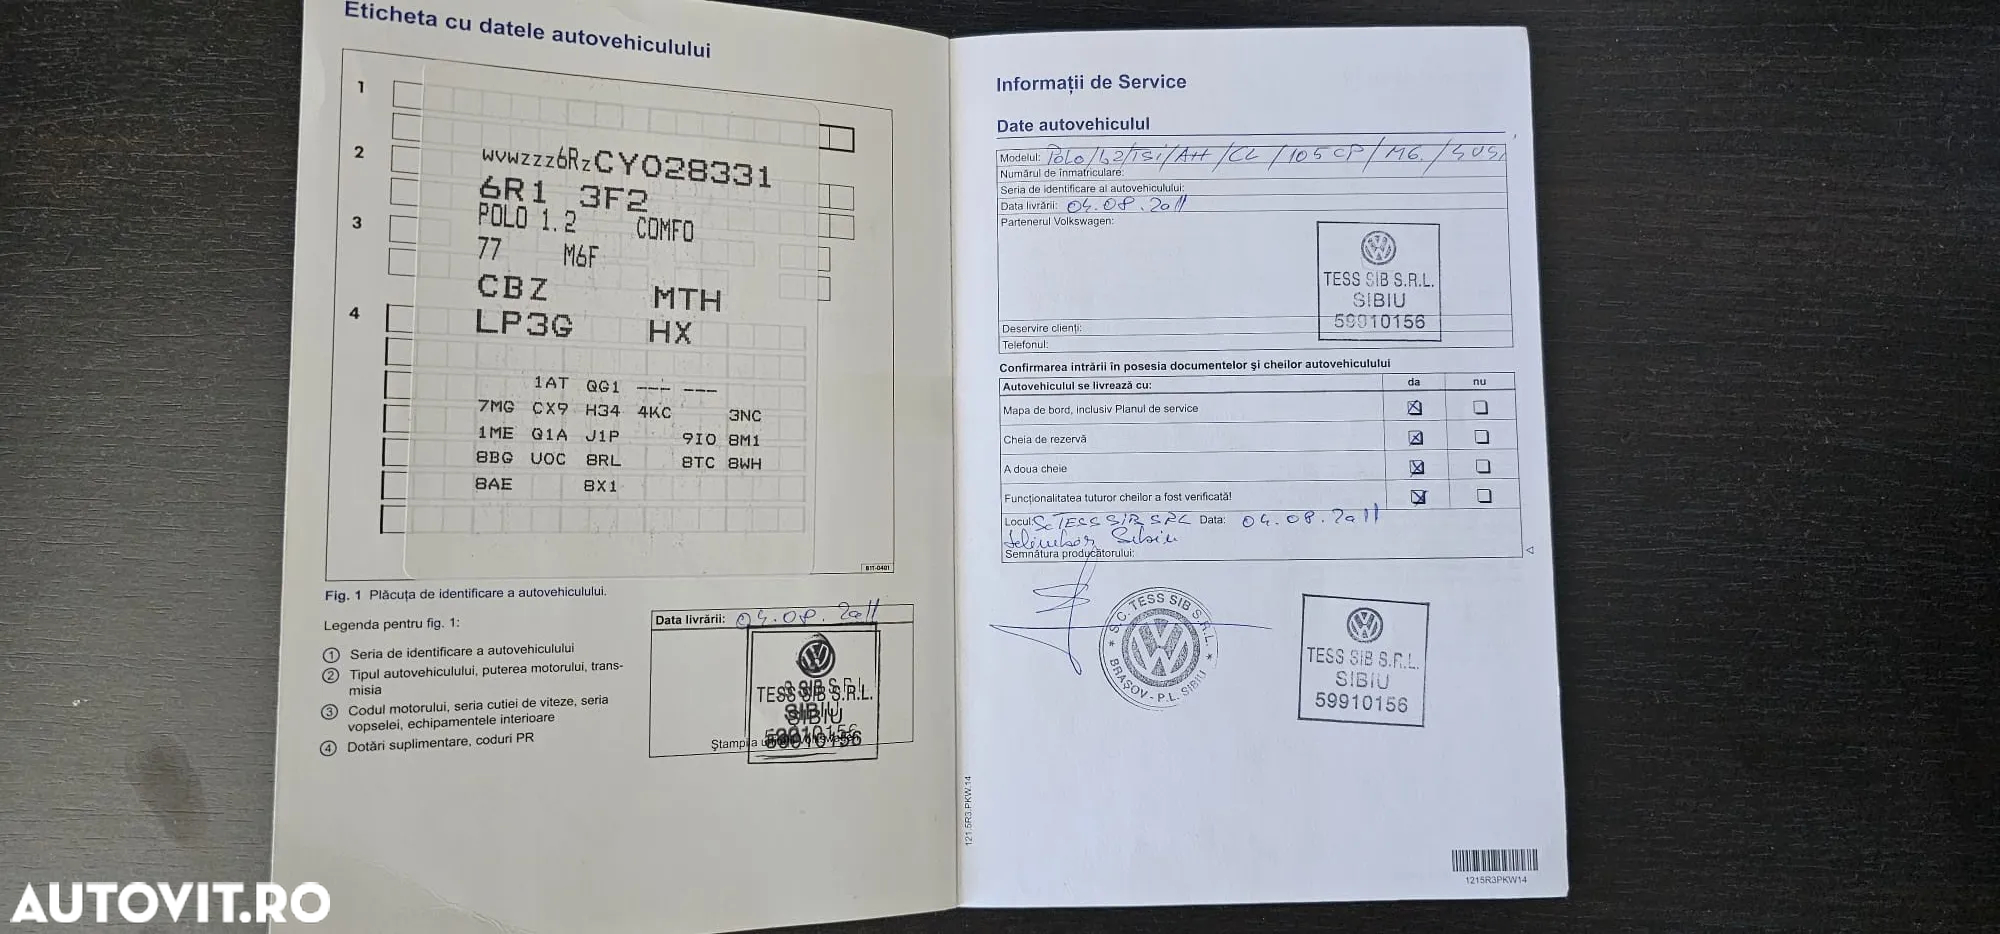 Eticheta cu datele autovehiculului
1
2
WVWZZZ6RZCY028331
6R1 3F2
3
POLO 1.2 COMFO
77 M6F
CBZ MTH
4
LP3G HX
1AT QG1 --- ---
7MG CX9 H34 4KC 3NC
1ME Q1A J1P 9IO 8M1
8BG UOC 8RL 8TC 8WH
8AE 8X1
B1T-0401
Fig. 1 Plăcuța de identificare a autovehiculului.
Legenda pentru fig. 1:
1 Seria de identificare a autovehiculului
2 Tipul autovehiculului, puterea motorului, trans-
misia
3 Codul motorului, seria cutiei de viteze, seria
vopselei, echipamentele interioare
4 Dotări suplimentare, coduri PR
Data livrării: 04.08.2011
TESS SIB S.R.L.
SIBIU
59910156
Ştampila
Informații de Service
Date autovehiculul
Modelul: Polo/1.2/TSI/AH/CL/105CP/M6./5US,
Numărul de înmatriculare:
Seria de identificare al autovehiculului:
Data livrării: 04.08.2011
Partenerul Volkswagen:
TESS SIB S.R.L.
SIBIU
59910156
Deservire clienți:
Telefonul:
Confirmarea intrării în posesia documentelor şi cheilor autovehiculului
Autovehiculul se livrează cu: da nu
Mapa de bord, inclusiv Planul de service
Cheia de rezervă
A doua cheie
Funcționalitatea tuturor cheilor a fost verificată!
Locul: SC TESS SIB SRL Data: 04.08.2011
Selimbar Sibiu
Semnătura producătorului:
S.C. TESS SIB S.R.L.
BRAŞOV - P.L. SIBIU
TESS SIB S.R.L.
SIBIU
59910156
121.5R3.PKW.14
1215R3PKW14
AUTOVIT.RO